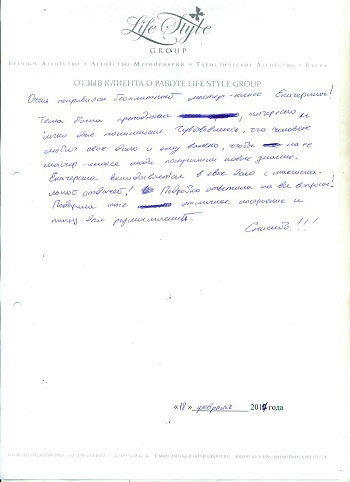 Life Style
GROUP
Брачное Агентство • Агентство Мероприятий • Туристическое Агентство •
ОТЗЫВ КЛИЕНТА О РАБОТЕ LIFE STYLE GROUP
Очень понравился бесплатный мастер-класс Екатерины!
Тема была преподнесена интересно и
ясно для понимания. Чувствовалось, что человек
любит свое дело и ему важно, чтобы на ее
мастер-классе люди получили новые знания.
Екатерина вкладывается в свое дело с максималь-
ной отдачей! Подробно ответила на все вопросы!
Подарила нам отличное настроение и
пищу для размышлений.
Спасибо!!!
«18» февраля 201 года